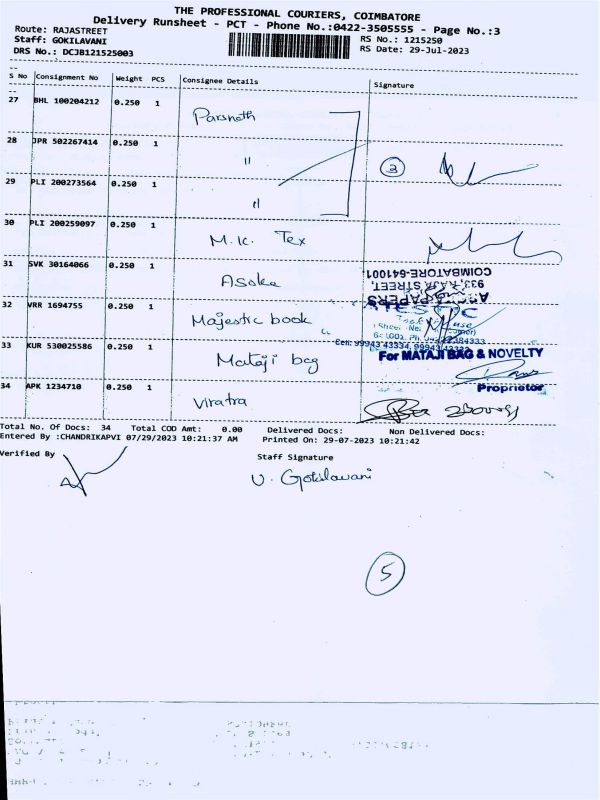 THE PROFESSIONAL COURIERS, COIMBATORE
Delivery Runsheet - PCT - Phone No.:0422-3505555 - Page No.:3
Route: RAJASTREET RS No.: 1215250
Staff: GOKILAVANI RS Date: 29-Jul-2023
DRS No.: DCJB121525003
S No Consignment No Weight PCS Consignee Details Signature
27 BHL 100204212 0.250 1 Parsnath
28 JPR 502267414 0.250 1 " 3
29 PLI 200273564 0.250 1 "
30 PLI 200259097 0.250 1 M.K. Tex
31 SVK 30164066 0.250 1 Asoka
COIMBATORE-641001
933, RAJA STREET,
32 VRR 1694755 0.250 1 Majestic book
Cell: 99943 43334, 99943
33 KUR 530025586 0.250 1 Mataji bag
For MATAJI BAG & NOVELTY
Proprietor
34 APK 1234710 0.250 1 Viratra
Total No. Of Docs: 34 Total COD Amt: 0.00 Delivered Docs: Non Delivered Docs:
Entered By :CHANDRIKAPVI 07/29/2023 10:21:37 AM Printed On: 29-07-2023 10:21:42
Verified By Staff Signature
V. Gokilavani
5